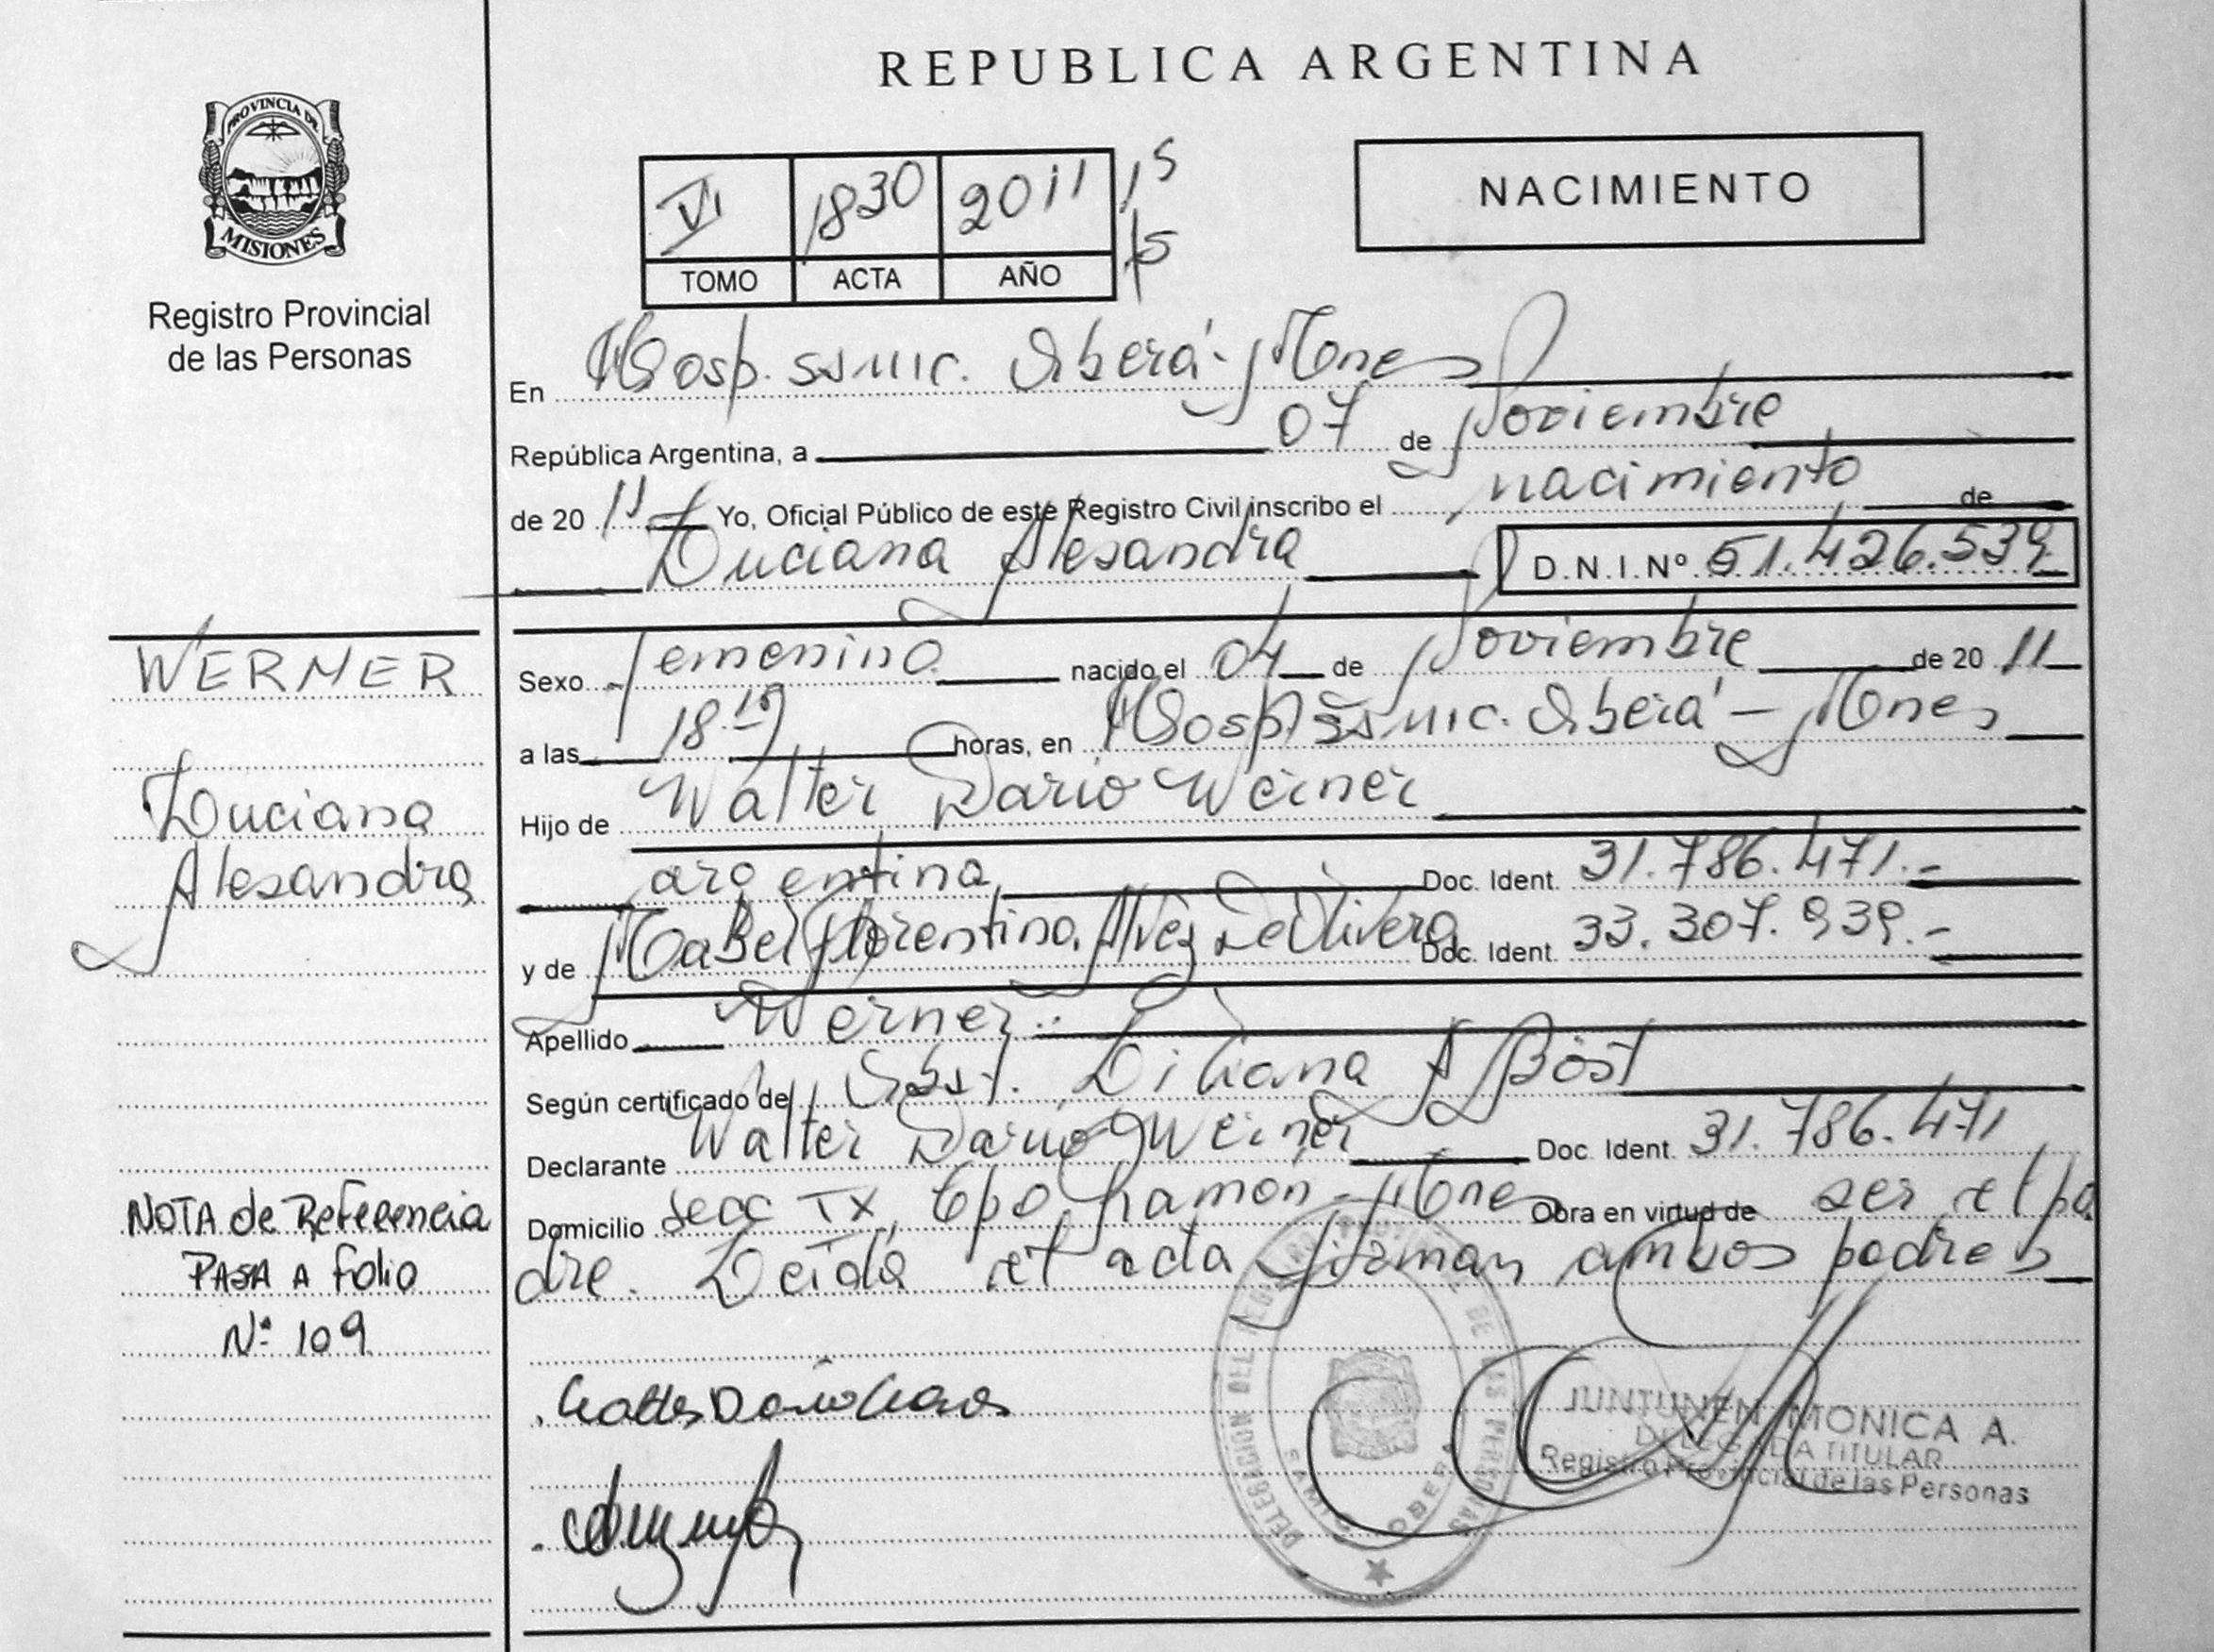 REPUBLICA ARGENTINA
PROVINCIA DE
MISIONES
Registro Provincial
de las Personas
VI 1830 2011 15
15
TOMO ACTA AÑO
NACIMIENTO
En Hosp. SSMIC. Oberá - Mnes
República Argentina, a 07 de Noviembre
de 20 11 Yo, Oficial Público de este Registro Civil inscribo el nacimiento de
Luciana Alesandra D.N.I.Nº 51.426.539
WERNER
Luciana
Alesandra
NOTA de Referencia
PASA A Folio
Nº 109
Sexo femenino nacido el 04 de Noviembre de 20 11
a las 18.19 horas, en Hosp. SSMIC. Oberá - Mnes
Hijo de Walter Dario Werner
argentina Doc. Ident. 31.786.471.-
y de Mabel Florentina Alvez De Olivera Doc. Ident. 33.307.939.-
Apellido Werner.-
Según certificado de Obst. Liliana A Böst
Declarante Walter Dario Werner Doc. Ident. 31.786.471
Domicilio secc IX, Cpo Ramón - Mnes Obra en virtud de ser el pa
dre. Leida el acta firman ambos padres
DELEGACION DEL REGISTRO PROVINCIAL DE LAS PERSONAS
OBERA
JUNTUNEN MONICA A.
DELEGADA TITULAR
Registro Provincial de las Personas